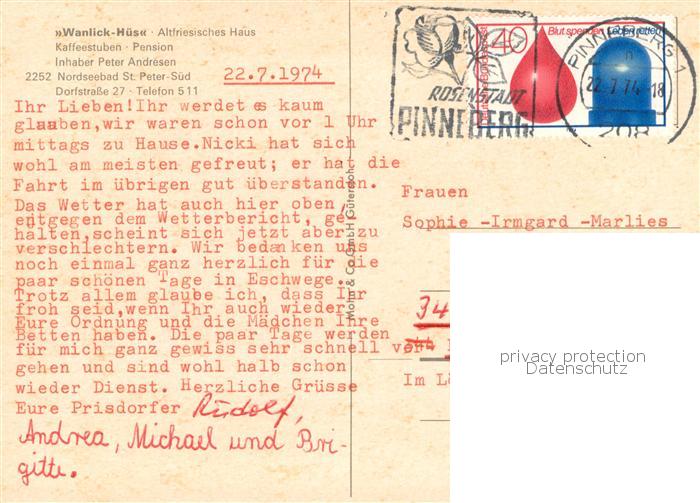 »Wanlick-Hüs« · Altfriesisches Haus
Kaffeestuben · Pension
Inhaber Peter Andrésen
2252 Nordseebad St. Peter-Süd
Dorfstraße 27 · Telefon 5 11
22.7.1974
Ihr Lieben!Ihr werdet es kaum
glauben,wir waren schon vor 1 Uhr
mittags zu Hause.Nicki hat sich
wohl am meisten gefreut; er hat die
Fahrt im übrigen gut überstanden.
Das Wetter hat auch hier oben,
entgegen dem Wetterbericht, ge-
halten,scheint sich jetzt aber zu
verschlechtern. Wir bedanken uns
noch einmal ganz herzlich für die
paar schönen Tage in Eschwege.
Trotz allem glaube ich, dass Ihr
froh seid,wenn Ihr auch wieder
Eure Ordnung und die Mädchen Ihre
Betten haben. Die paar Tage werden
für mich ganz gewiss sehr schnell
gehen und sind wohl halb schon
wieder Dienst. Herzliche Grüsse
Eure Prisdorfer Rudolf,
Andrea, Michael und Bri-
gitte.
Mohn & Co GmbH Gütersloh
ROSENSTADT
PINNEBERG
40
Blut spenden Leben retten
PINNEBERG 1
22.7.74-18
208
Frauen
Sophie -Irmgard -Marlies
34
Im
privacy protection
Datenschutz